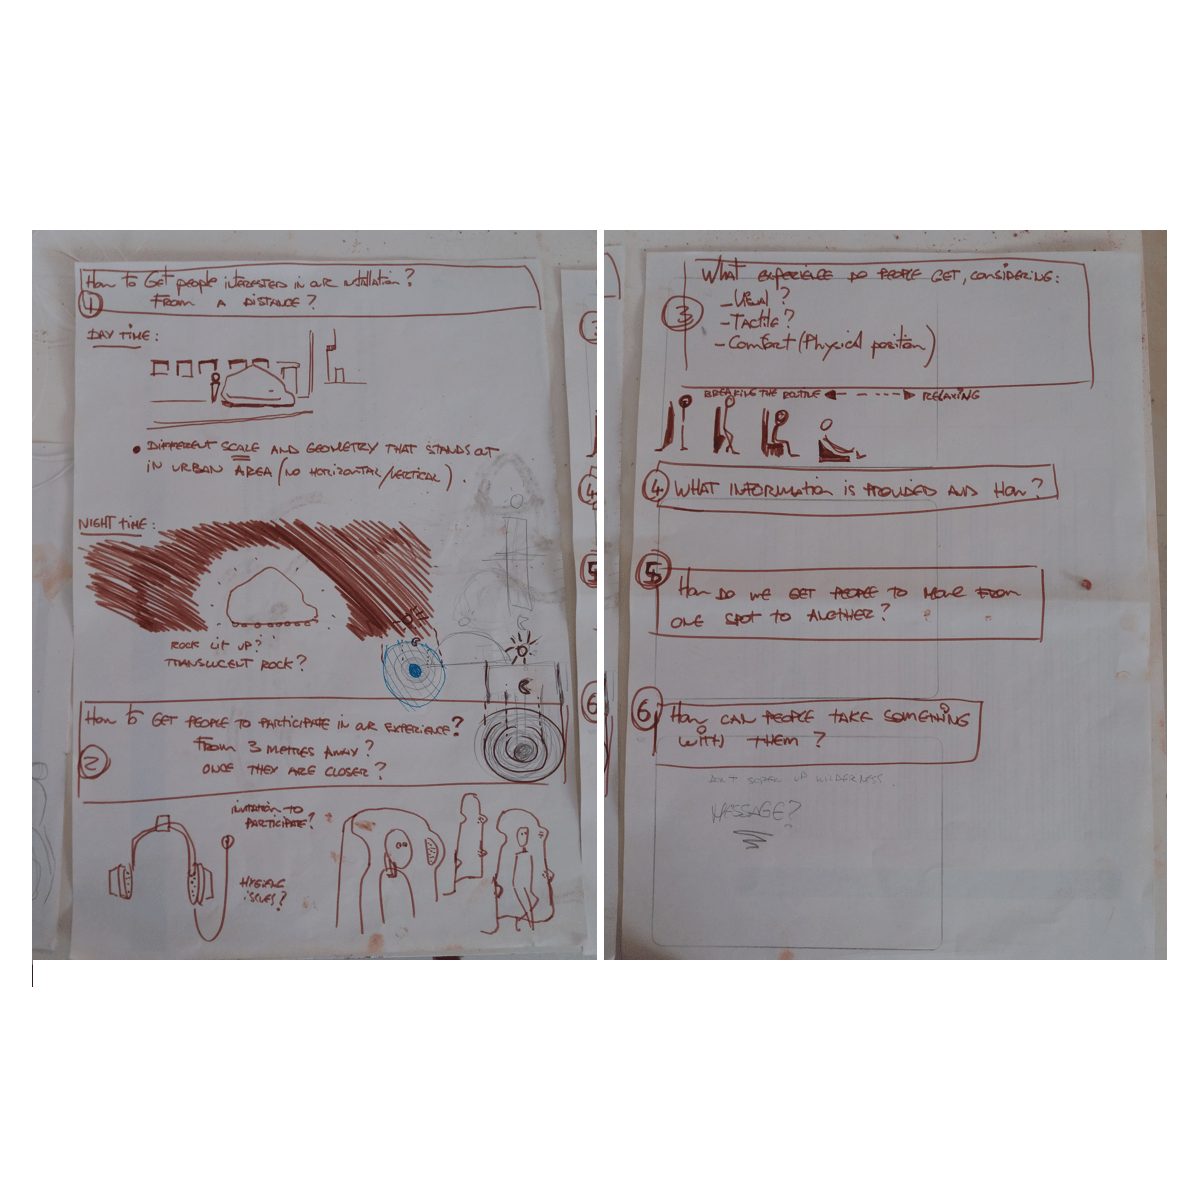 How to Get people interested in our installation?
From a distance?
1
Day time:
• Different scale and geometry that stands out
in urban area (no horizontal/vertical).
Night time:
Rock lit up?
Translucent rock?
How to get people to participate in our experience?
From 3 metres away?
Once they are closer?
2
Invitation to
participate?
Hygiene
issues?
What experience do people get, considering:
- Visual?
- Tactile?
- Comfort (Physical position)
3
Breaking the routine ◄ - - - ► Relaxing
4 What information is provided and how?
5
How do we get people to move from
one spot to another?
6 How can people take something
with them?
Don't up wilderness.
Message?
3
4
5
6